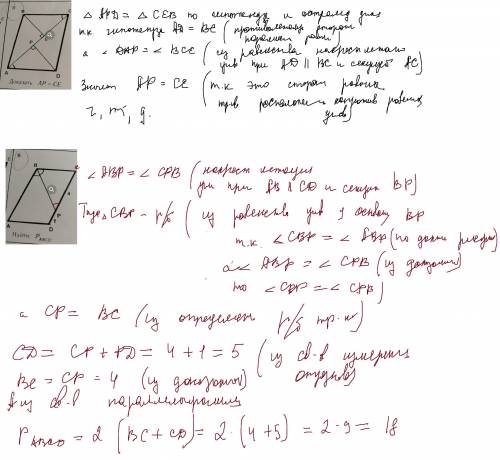 △ APD = △ CEB по гипотенузе и острому углу
т.к. гипотенузы AD = BC (противоположные стороны
параллел равны)
а ∠DAP = ∠BCE (из равенства накрест лежащих
углов при AD ∥ BC и секущей AC)
Значит AP = CE (т.к. это стороны равных
треуг расположен напротив равных
углов)
ч, т, д.
A
D
Доказать: AP = CE
∠ABP = ∠CPB (накрест лежащие
углы при AB ∥ CD и секущей BP)
Тогда △CBP - р/б (из равенства углов у основан BP
т.к. ∠CBP = ∠ABP (по
а ∠ABP = ∠CPB (из доказан)
то ∠CBP = ∠CPB)
а CP = BC (из определен р/б тр-к)
CD = CP + PD = 4 + 1 = 5 (из св-в измерения
отрезков)
BC = CP = 4 (из доказан)
из св-в параллелограмма
P ABCD = 2 (BC + CD) = 2·(4+5) = 2·9 = 18
B
4
P
1
A
D
Найти: P ABCD